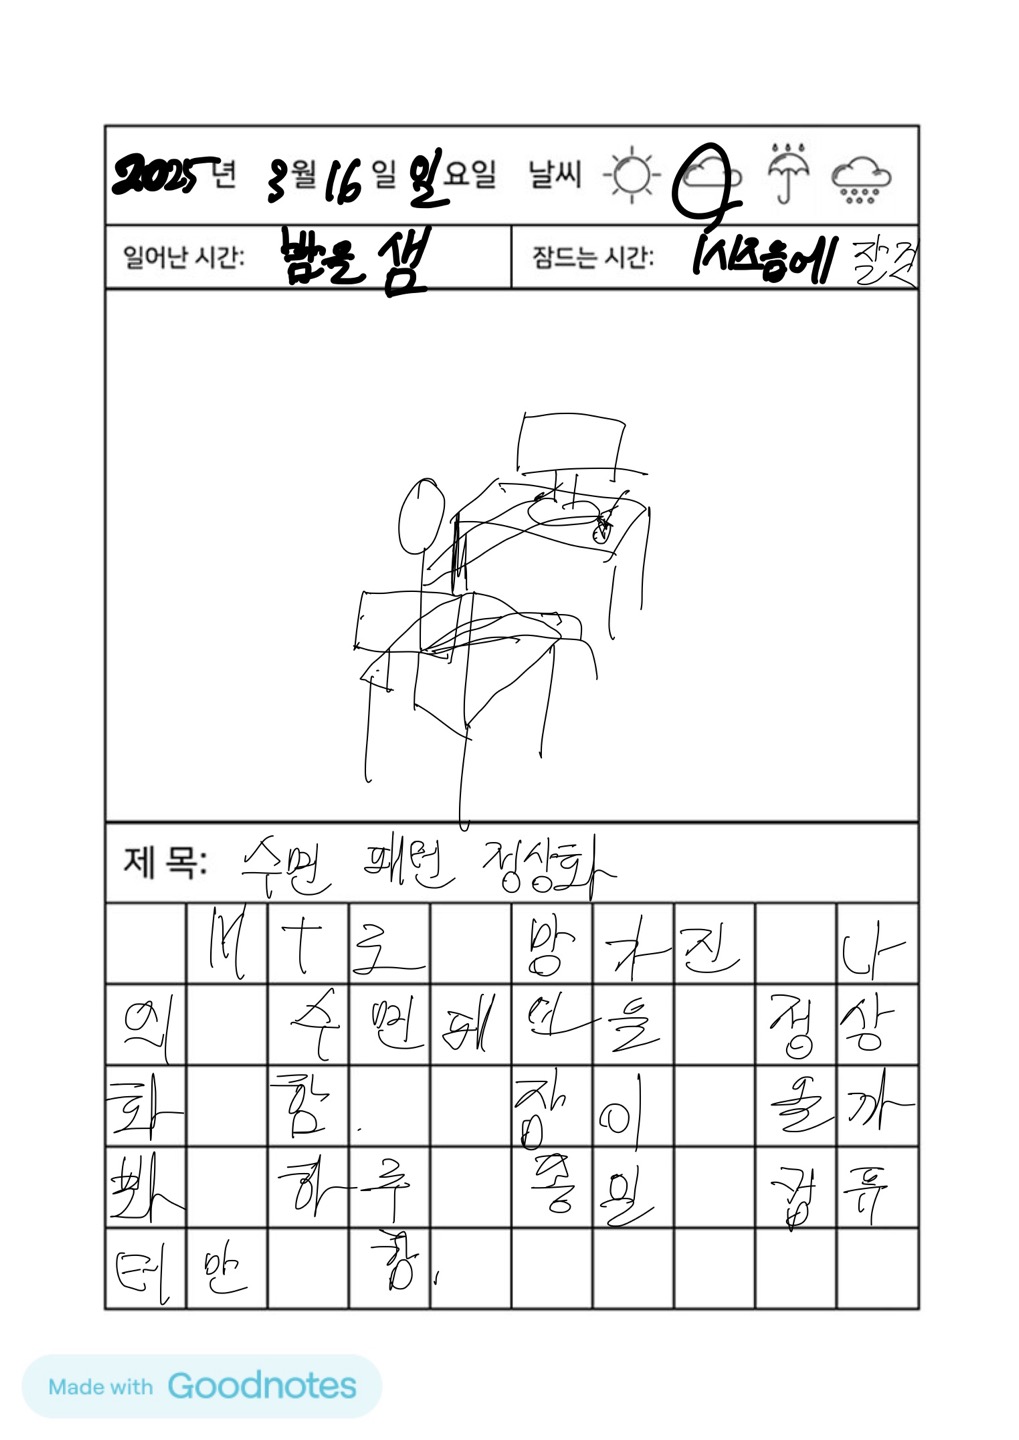 2025년 3월 16일 일요일 날씨
일어난 시간: 밤을 샘 잠드는 시간: 1시즈음에 잘것
제 목: 수면 패턴 정상화
MT로 망가진 나
의 수면패턴을 정상
화 함. 잠이 올까
봐 하루 종일 컴퓨
터만 함.
Made with Goodnotes